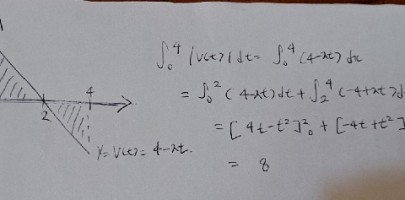 ∫₀⁴ |v(t)| dt = ∫₀⁴ (4-2t) dt
= ∫₀² (4-2t) dt + ∫₂⁴ (-4+2t) d
= [4t-t²]²₀ + [-4t+t²]
= 8
4
2
Y = V(t) = 4-2t.